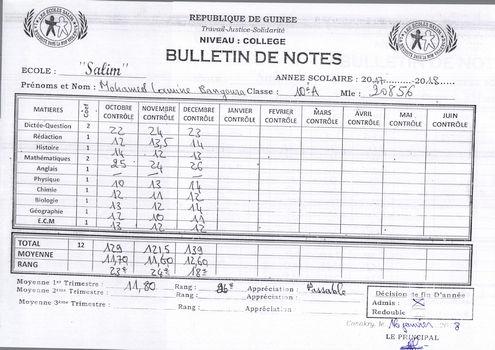 REPUBLIQUE DE GUINEE
Travail-Justice-Solidarité
NIVEAU : COLLEGE
BULLETIN DE NOTES
ECOLE : "Salim" ANNEE SCOLAIRE : 2017 - 2018
Prénoms et Nom : Mohamed Lamine Bangoura Classe : 10e A Mle : 20856
MATIERES Coef OCTOBRE CONTRÔLE NOVEMBRE CONTRÔLE DECEMBRE CONTRÔLE JANVIER CONTRÔLE FEVRIER CONTRÔLE MARS CONTRÔLE AVRIL CONTRÔLE MAI CONTRÔLE JUIN CONTRÔLE
Dictée-Question 2 22 24 23
Rédaction 1 12 13,5 14
Histoire 1 14 12 13
Mathématiques 2 25 24 26
Anglais 1 — — —
Physique 1 10 13 14
Chimie 1 12 11 12
Biologie 1 13 12 14
Géographie 1 12 10 11
E.C.M 1 13 12 12
TOTAL 12 129 121,5 139
MOYENNE 11,70 11,60 12,60
RANG 23e 24e 18e
Moyenne 1er Trimestre : 11,80 Rang : 26e Appréciation : Passable
Moyenne 2ème Trimestre : Rang : Appréciation :
Moyenne 3ème Trimestre : Rang : Appréciation :
Décision de fin D'année
Admis :
Redouble
Conakry, le 16 janvier 2018
LE PRINCIPAL